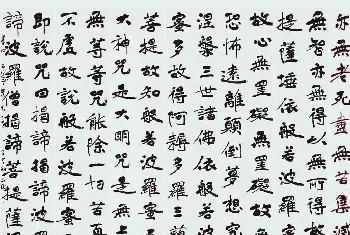 亦無老死盡無苦集滅
無智亦無得以無所得故
提薩埵依般若波羅蜜
故心無罣礙無罣礙故
恐怖遠離顛倒夢想究
涅槃三世諸佛依般若
蜜多故得阿耨多羅三
菩提故知般若波羅蜜
大神咒是大明咒是無上
無等等咒能除一切苦真
不虛故說般若波羅蜜
即說咒曰揭諦揭諦波
諦波羅僧揭諦菩提薩